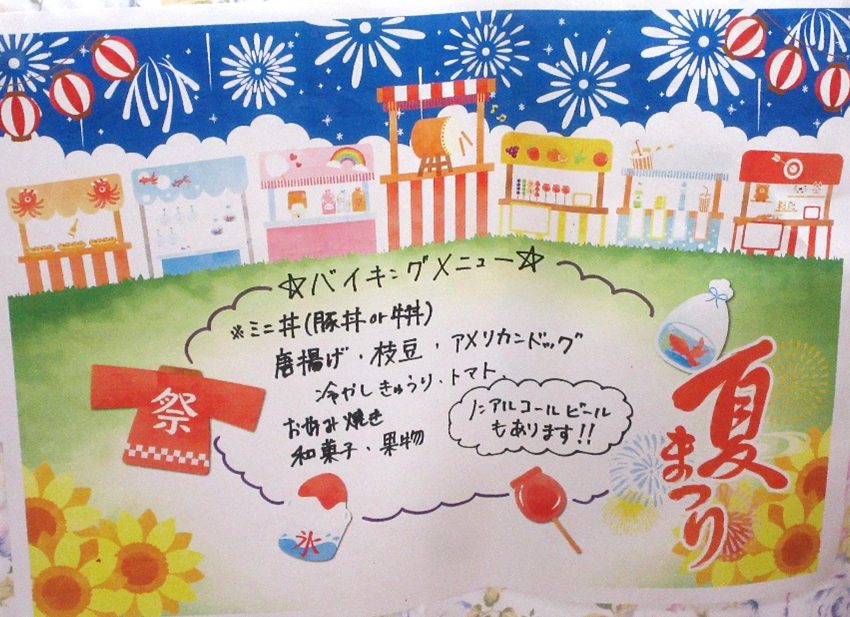 ☆バイキングメニュー☆
※ミニ丼(豚丼or牛丼)
唐揚げ・枝豆・アメリカンドッグ
冷やしきゅうり、トマト、
お好み焼き
和菓子・果物
ノンアルコールビール
もあります!!
祭
氷
夏まつり